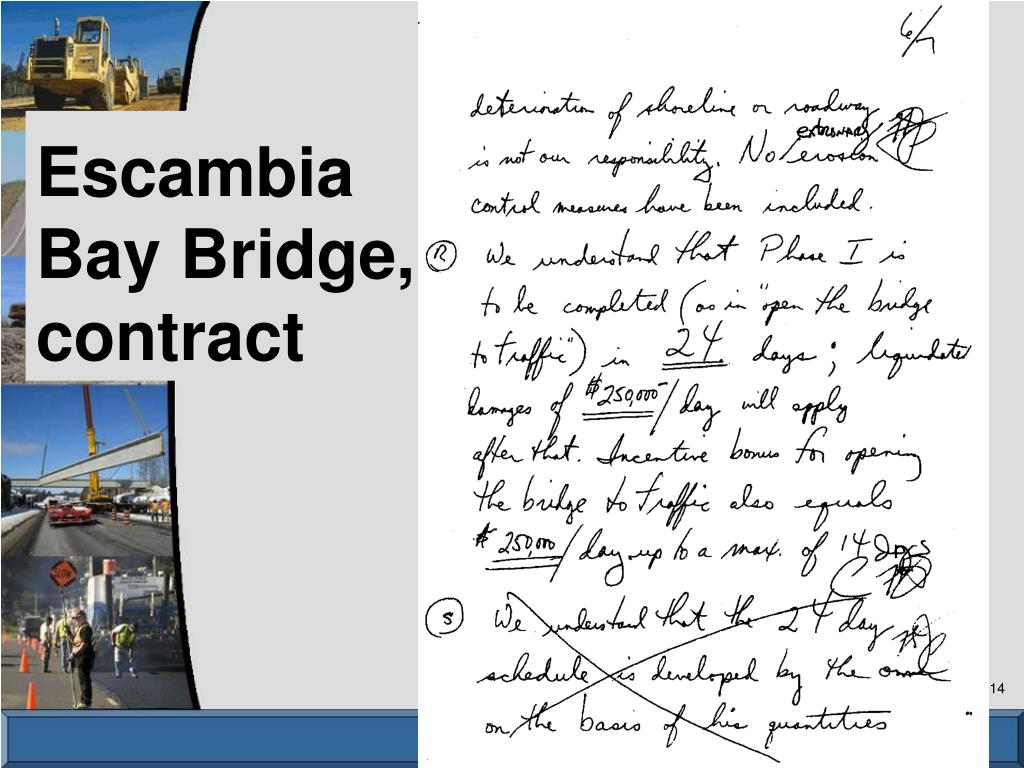 Escambia
Bay Bridge,
contract
6/7
deterioration of shoreline or roadway
extraordinary
is not our responsibility. No erosion
control measures have been included.
R We understand that Phase I is
to be completed (as in "open the bridge
to traffic") in 24 days; liquidated
damages of $250,000-/day will apply
after that. Incentive bonus for opening
the bridge to traffic also equals
$250,000/day up to a max. of 14 days
S We understand that the 24 day
schedule is developed by the owner
on the basis of his quantities
SLOW
14